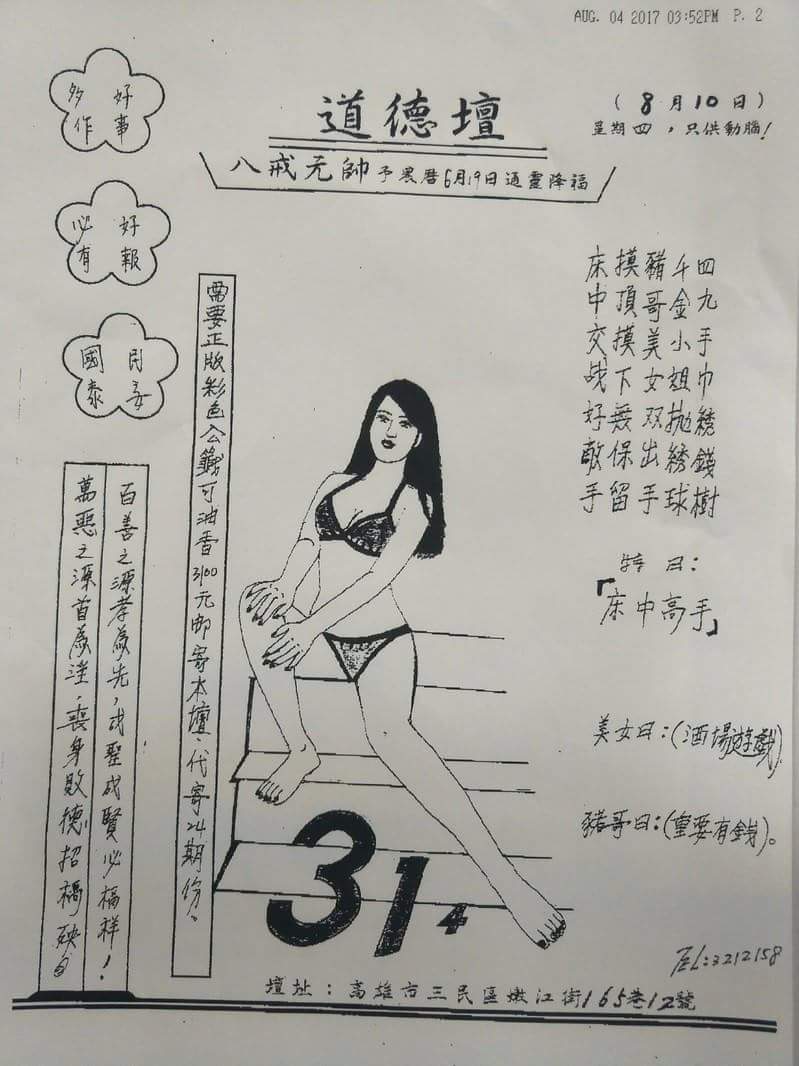 AUG. 04 2017 03:52PM P. 2
道德壇
(8月10日)
星期四，只供動腦！
八戒元帥予農曆6月19日通靈降福
好事
多作
好報
必有
民安
國泰
四九手巾綉錢樹
千金小姐拋綉球
豬哥美女双出手
摸頂摸下無保留
床中交战好敵手
特曰：
「床中高手」
美女曰：(酒場遊戲)
豬哥曰：(重要有錢)。
需要正版彩色公籤可油香3100元邮寄本壇，代寄24期份。
百善之源孝為先，成聖成賢必福祥！
萬惡之源首為淫，喪身敗德招禍殃
314
TEL:3212158
壇址：高雄市三民區嫩江街165巷12號